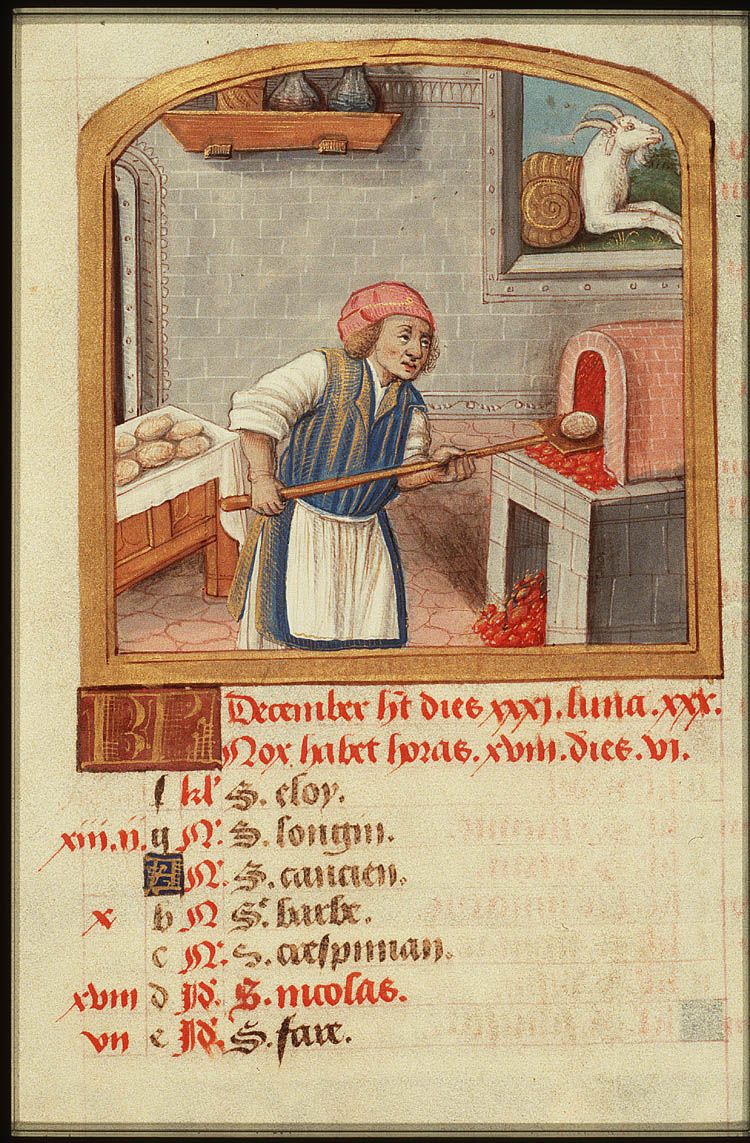 KL December ht dies xxxj. luna. xxx.
Nox habet horas. xviii. dies. vi.
f kl' S. eloy.
xiii. ii. g N'. S. longin.
A N'. S. cancien.
x b N Sᵉ. barbe.
c N'. S. crespinian.
xviii d Jd'. S. nicolas.
vii e Jd'. S. fare.